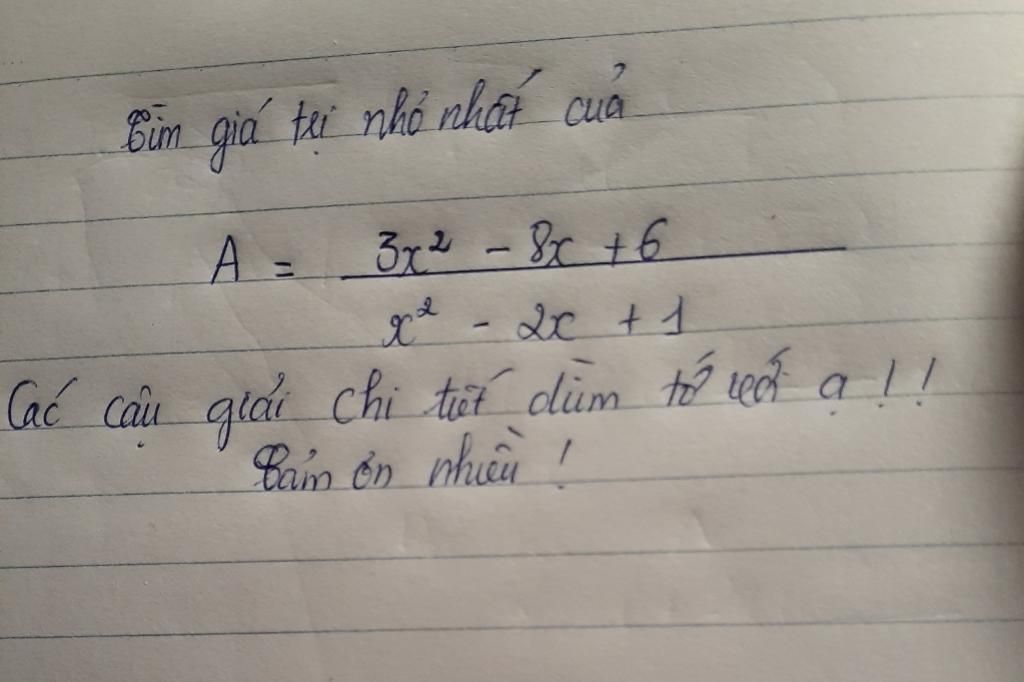 Tìm giá trị nhỏ nhất của
A = \frac{3x² - 8x + 6}{x² - 2x + 1}
Các cậu giải chi tiết dùm tớ với ạ!!
Cảm ơn nhiều!